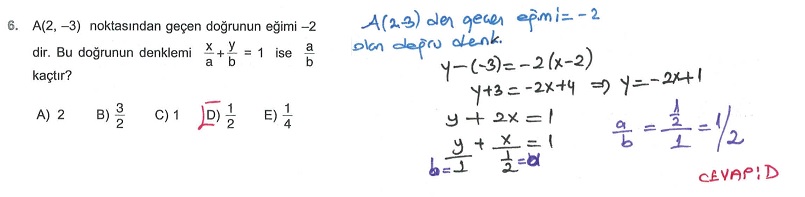 6. A(2, –3) noktasından geçen doğrunun eğimi –2
dir. Bu doğrunun denklemi x/a + y/b = 1 ise a/b
kaçtır?
A) 2 B) 3/2 C) 1 D) 1/2 E) 1/4
A(2,-3) den geçen eğimi = -2
olan doğru denk.
y-(-3) = -2(x-2)
y+3 = -2x+4 ⇒ y = -2x+1
y + 2x = 1
y/1 + x/(1/2) = 1
b=1 1/2=a
a/b = (1/2)/1 = 1/2
CEVAP: D